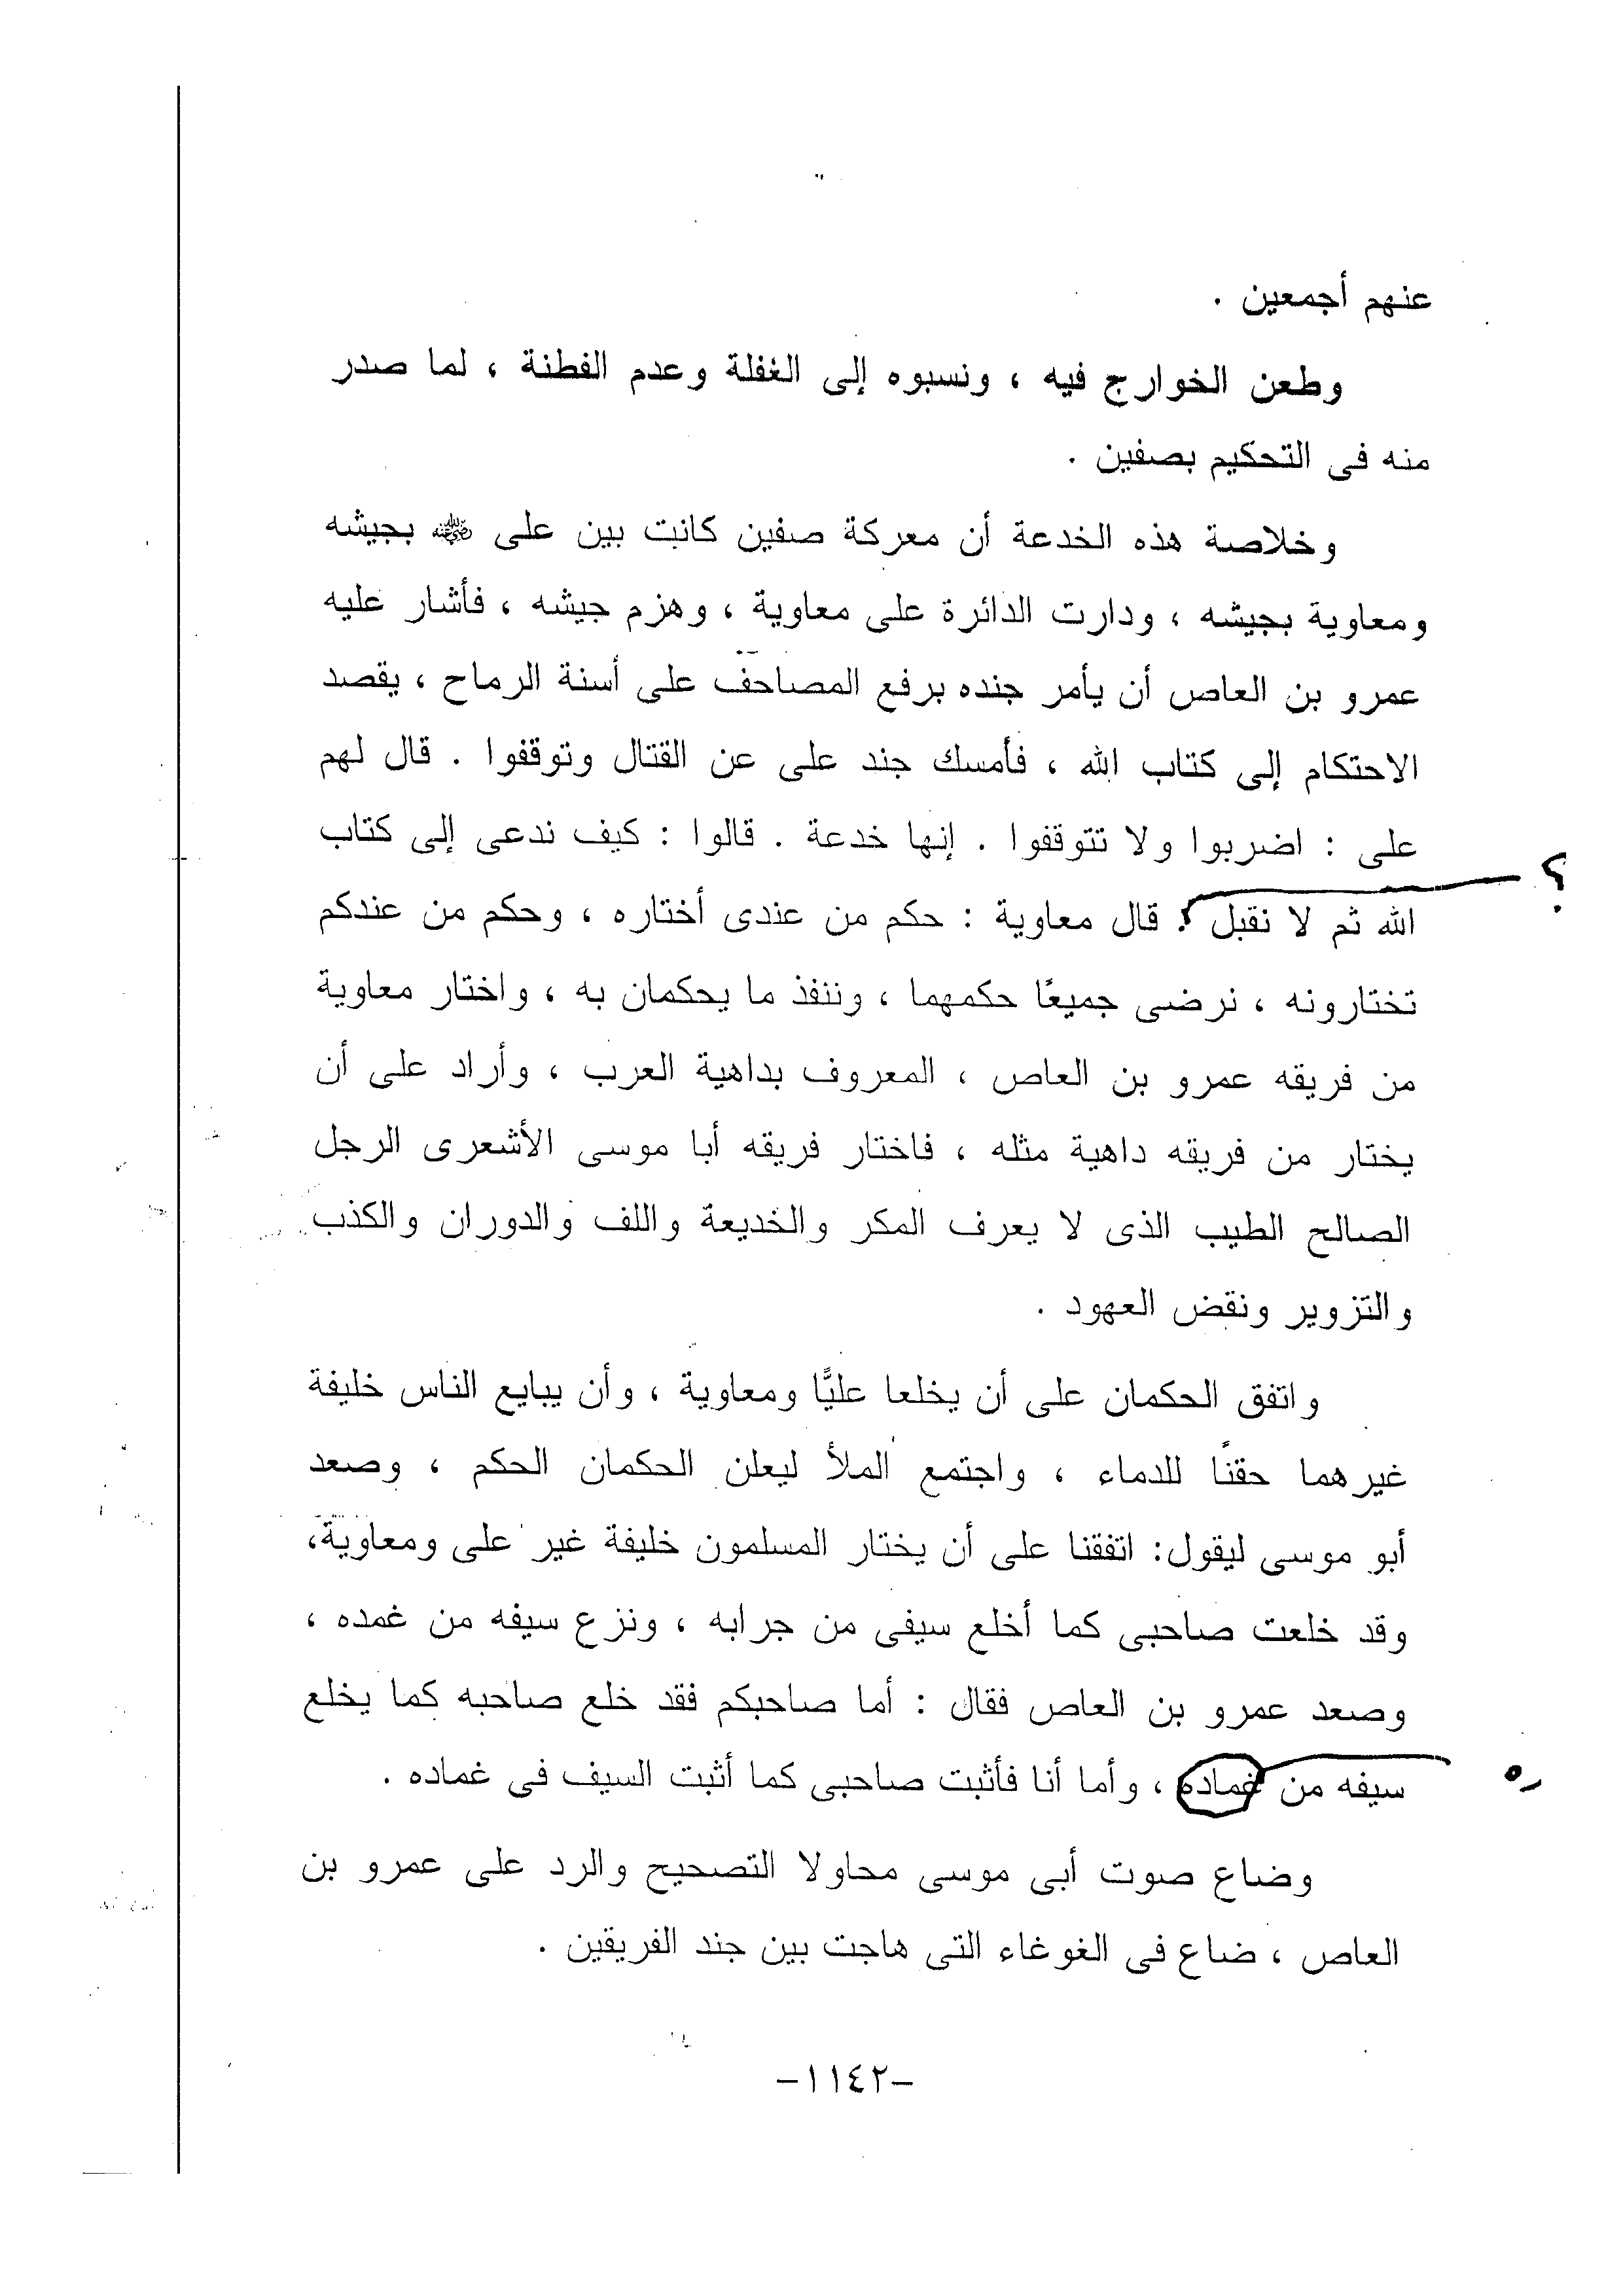 عنهم أجمعين .
وطعن الخوارج فيه ، ونسبوه إلى الغفلة وعدم الفطنة ، لما صدر
منه فى التحكيم بصفين .
وخلاصة هذه الخدعة أن معركة صفين كانت بين على رضي الله عنه بجيشه
ومعاوية بجيشه ، ودارت الدائرة على معاوية ، وهزم جيشه ، فأشار عليه
عمرو بن العاص أن يأمر جنده برفع المصاحف على أسنة الرماح ، يقصد
الاحتكام إلى كتاب الله ، فأمسك جند على عن القتال وتوقفوا . قال لهم
على : اضربوا ولا تتوقفوا . إنها خدعة . قالوا : كيف ندعى إلى كتاب
؟
الله ثم لا نقبل . قال معاوية : حكم من عندى أختاره ، وحكم من عندكم
تختارونه ، نرضى جميعًا حكمهما ، وننفذ ما يحكمان به ، واختار معاوية
من فريقه عمرو بن العاص ، المعروف بداهية العرب ، وأراد على أن
يختار من فريقه داهية مثله ، فاختار فريقه أبا موسى الأشعرى الرجل
الصالح الطيب الذى لا يعرف المكر والخديعة واللف والدوران والكذب
والتزوير ونقض العهود .
واتفق الحكمان على أن يخلعا عليًّا ومعاوية ، وأن يبايع الناس خليفة
غيرهما حقنًا للدماء ، واجتمع الملأ ليعلن الحكمان الحكم ، وصعد
أبو موسى ليقول: اتفقنا على أن يختار المسلمون خليفة غير على ومعاوية،
وقد خلعت صاحبى كما أخلع سيفى من جرابه ، ونزع سيفه من غمده ،
وصعد عمرو بن العاص فقال : أما صاحبكم فقد خلع صاحبه كما يخلع
سيفه من غماده ، وأما أنا فأثبت صاحبى كما أثبت السيف فى غماده .
وضاع صوت أبى موسى محاولا التصحيح والرد على عمرو بن
العاص ، ضاع فى الغوغاء التى هاجت بين جند الفريقين .
-١١٤٢-